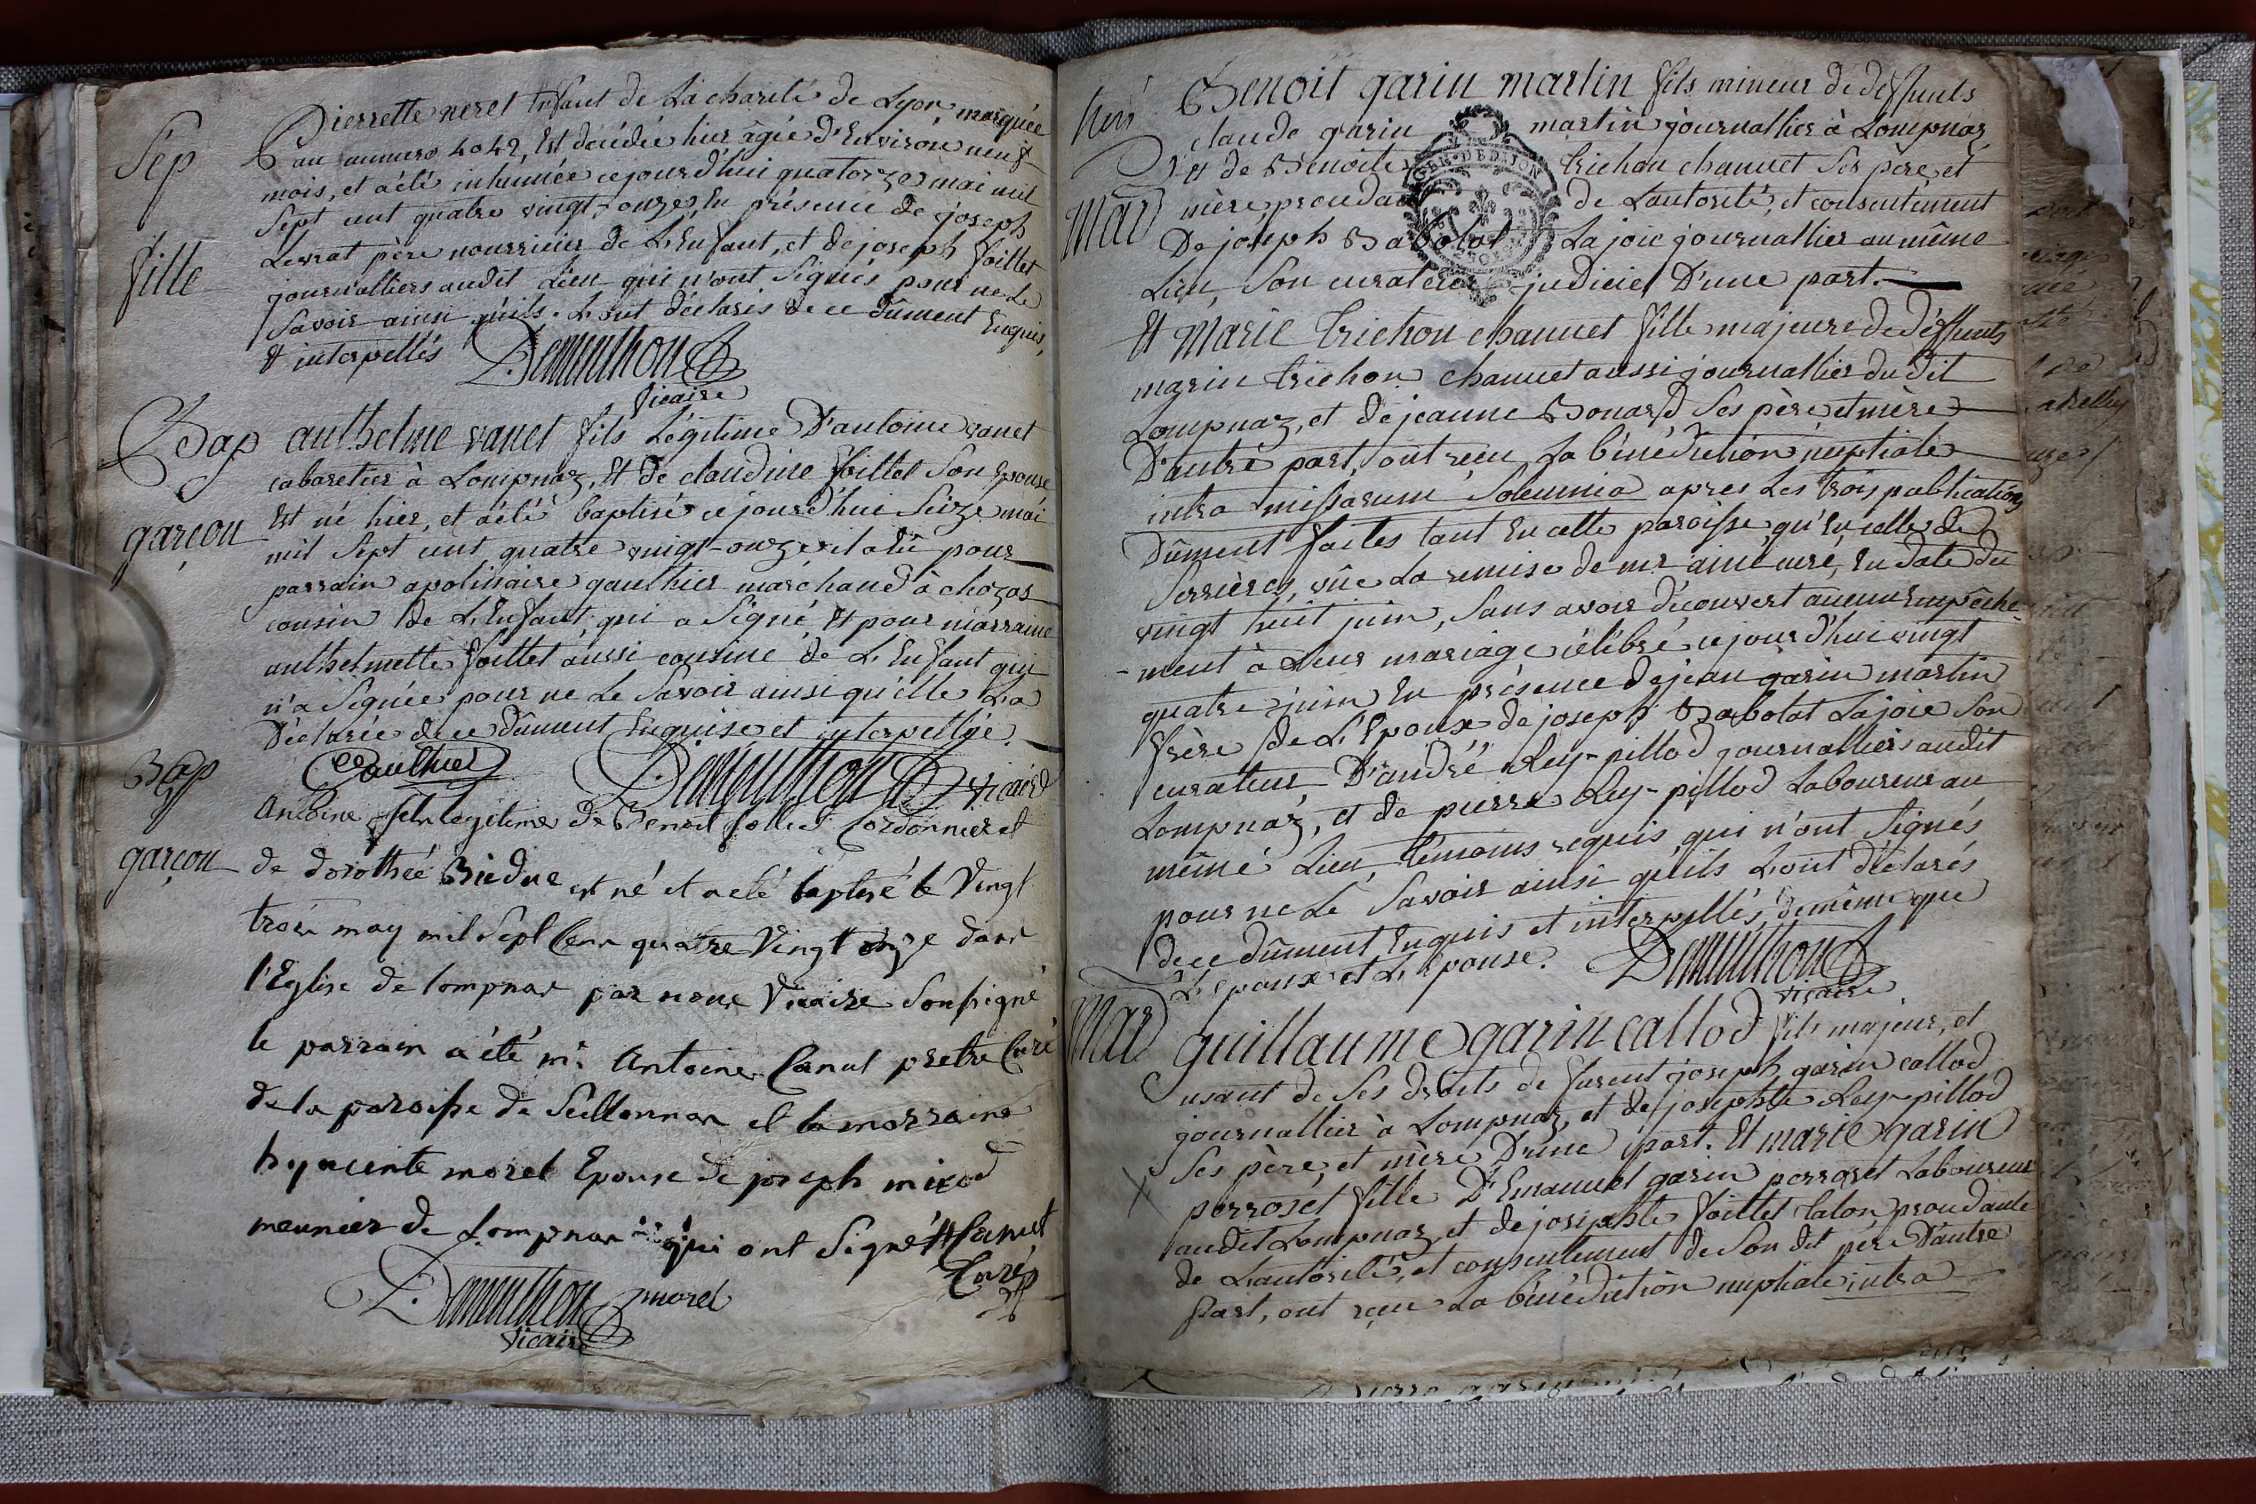 Sep
Pierrette neret Enfant de La charité de Lyon, marquée
au numero 4042, Est décédée hier âgée d'Environ neuf
mois, et a été inhumée ce jourd'hui quatorze mai mil
Sept cent quatre vingt-onze, En présence de joseph
fille
Levrat père nourricier de L'Enfant, et de joseph foillet
journalliers audit Lieu qui n'ont Signés pour ne Le
Savoir ainsi qu'ils L'ont déclarés de ce dûment Enquis,
et interpellés
Demunthon
vicaire
Bap
anthelme vanet fils Légitime D'antoine vanet
cabaretier à Lompnaz, Et de claudine foillet Son Epouse
garçon
Est né hier, et a été baptisé ce jourd'hui Seize mai
mil Sept cent quatre vingt-onze il a eû pour
parrain apolinaire gauthier marchand à chozas
cousin de L'Enfant, qui a Signé Et pour marraine
anthelmette foillet aussi cousine de L'Enfant qui
n'a Signée pour ne Le Savoir ainsi qu'elle L'a
Déclarée de ce Dûment Enquise et interpellée.
Gauthier
Demunthon vicaire
Bap
garçon
Antoine fils legitime de Benoit follet Cordonnier et
de dorothée Biedue est né et a eté baptisé le Vingt
trois may mil Sept Cent quatre Vingt onze dans
l'Eglise de lompnas par nous Vicaire Soussigné
le parrain a été mr Antoine Canut pretre Curé
de la paroisse de Seillonnas et la marraine
hyacinte morel Epouse de joseph mixod
meunier de Lompnas qui ont Signé Canut
Curé
Demunthon morel
vicaire
Mar
Benoit garin martin fils mineur de deffunts
claude garin martin journallier à Lompnaz,
et de Benoite trichon chanuet Ses père et
mère, prendant de L'autorité, et consentement
De joseph Babolat La joie journallier au même
Lieu, Son curateur judiciel D'une part.
GEN. DE DIJON
Et Marie trichon chanuet fille majeure de déffunts
marin trichon chanuet aussi journallier du dit
Lompnaz, et de jeanne Bonard Ses père, et mère
D'autre part, ont reçu La bénédiction nuptiale
intra missarum Solemnia apres Les trois publications
Dûment faites tant En cette paroisse, qu'En celle de
Serrières, vûe La remise de mr aimé curé, En date du
vingt huit juin, Sans avoir découvert aucun Empêche-
-ment à Leur mariage célébré ce jourd'hui vingt
quatre juin En présence de jean garin martin
frère de L'Epoux de joseph Babolat La joie Son
curateur D'andré Rey-pillod journalliers audit
Lompnaz, et de pierre Rey-pillod Laboureur au
même Lieu, témoins requis, qui n'ont Signés
pour ne Le Savoir ainsi qu'ils L'ont déclarés
de ce dûment Enquis et interpellés, de même que
L'Epoux et L'Epouse.
Demunthon
vicaire
Mar
guillaume garin callod fils majeur, et
usant de Ses droits de furent joseph garin callod
journallier à Lompnaz, et de josephte Rey-pillod
Ses père, et mère D'une part. Et marie garin
perroset fille D'Emanuel garin perroset Laboureur
audit Lompnaz, et de josephte foillet talon, prendante
de L'autorité, et consentement de Son dit père D'autre
part, ont reçu La bénédiction nuptiale intra